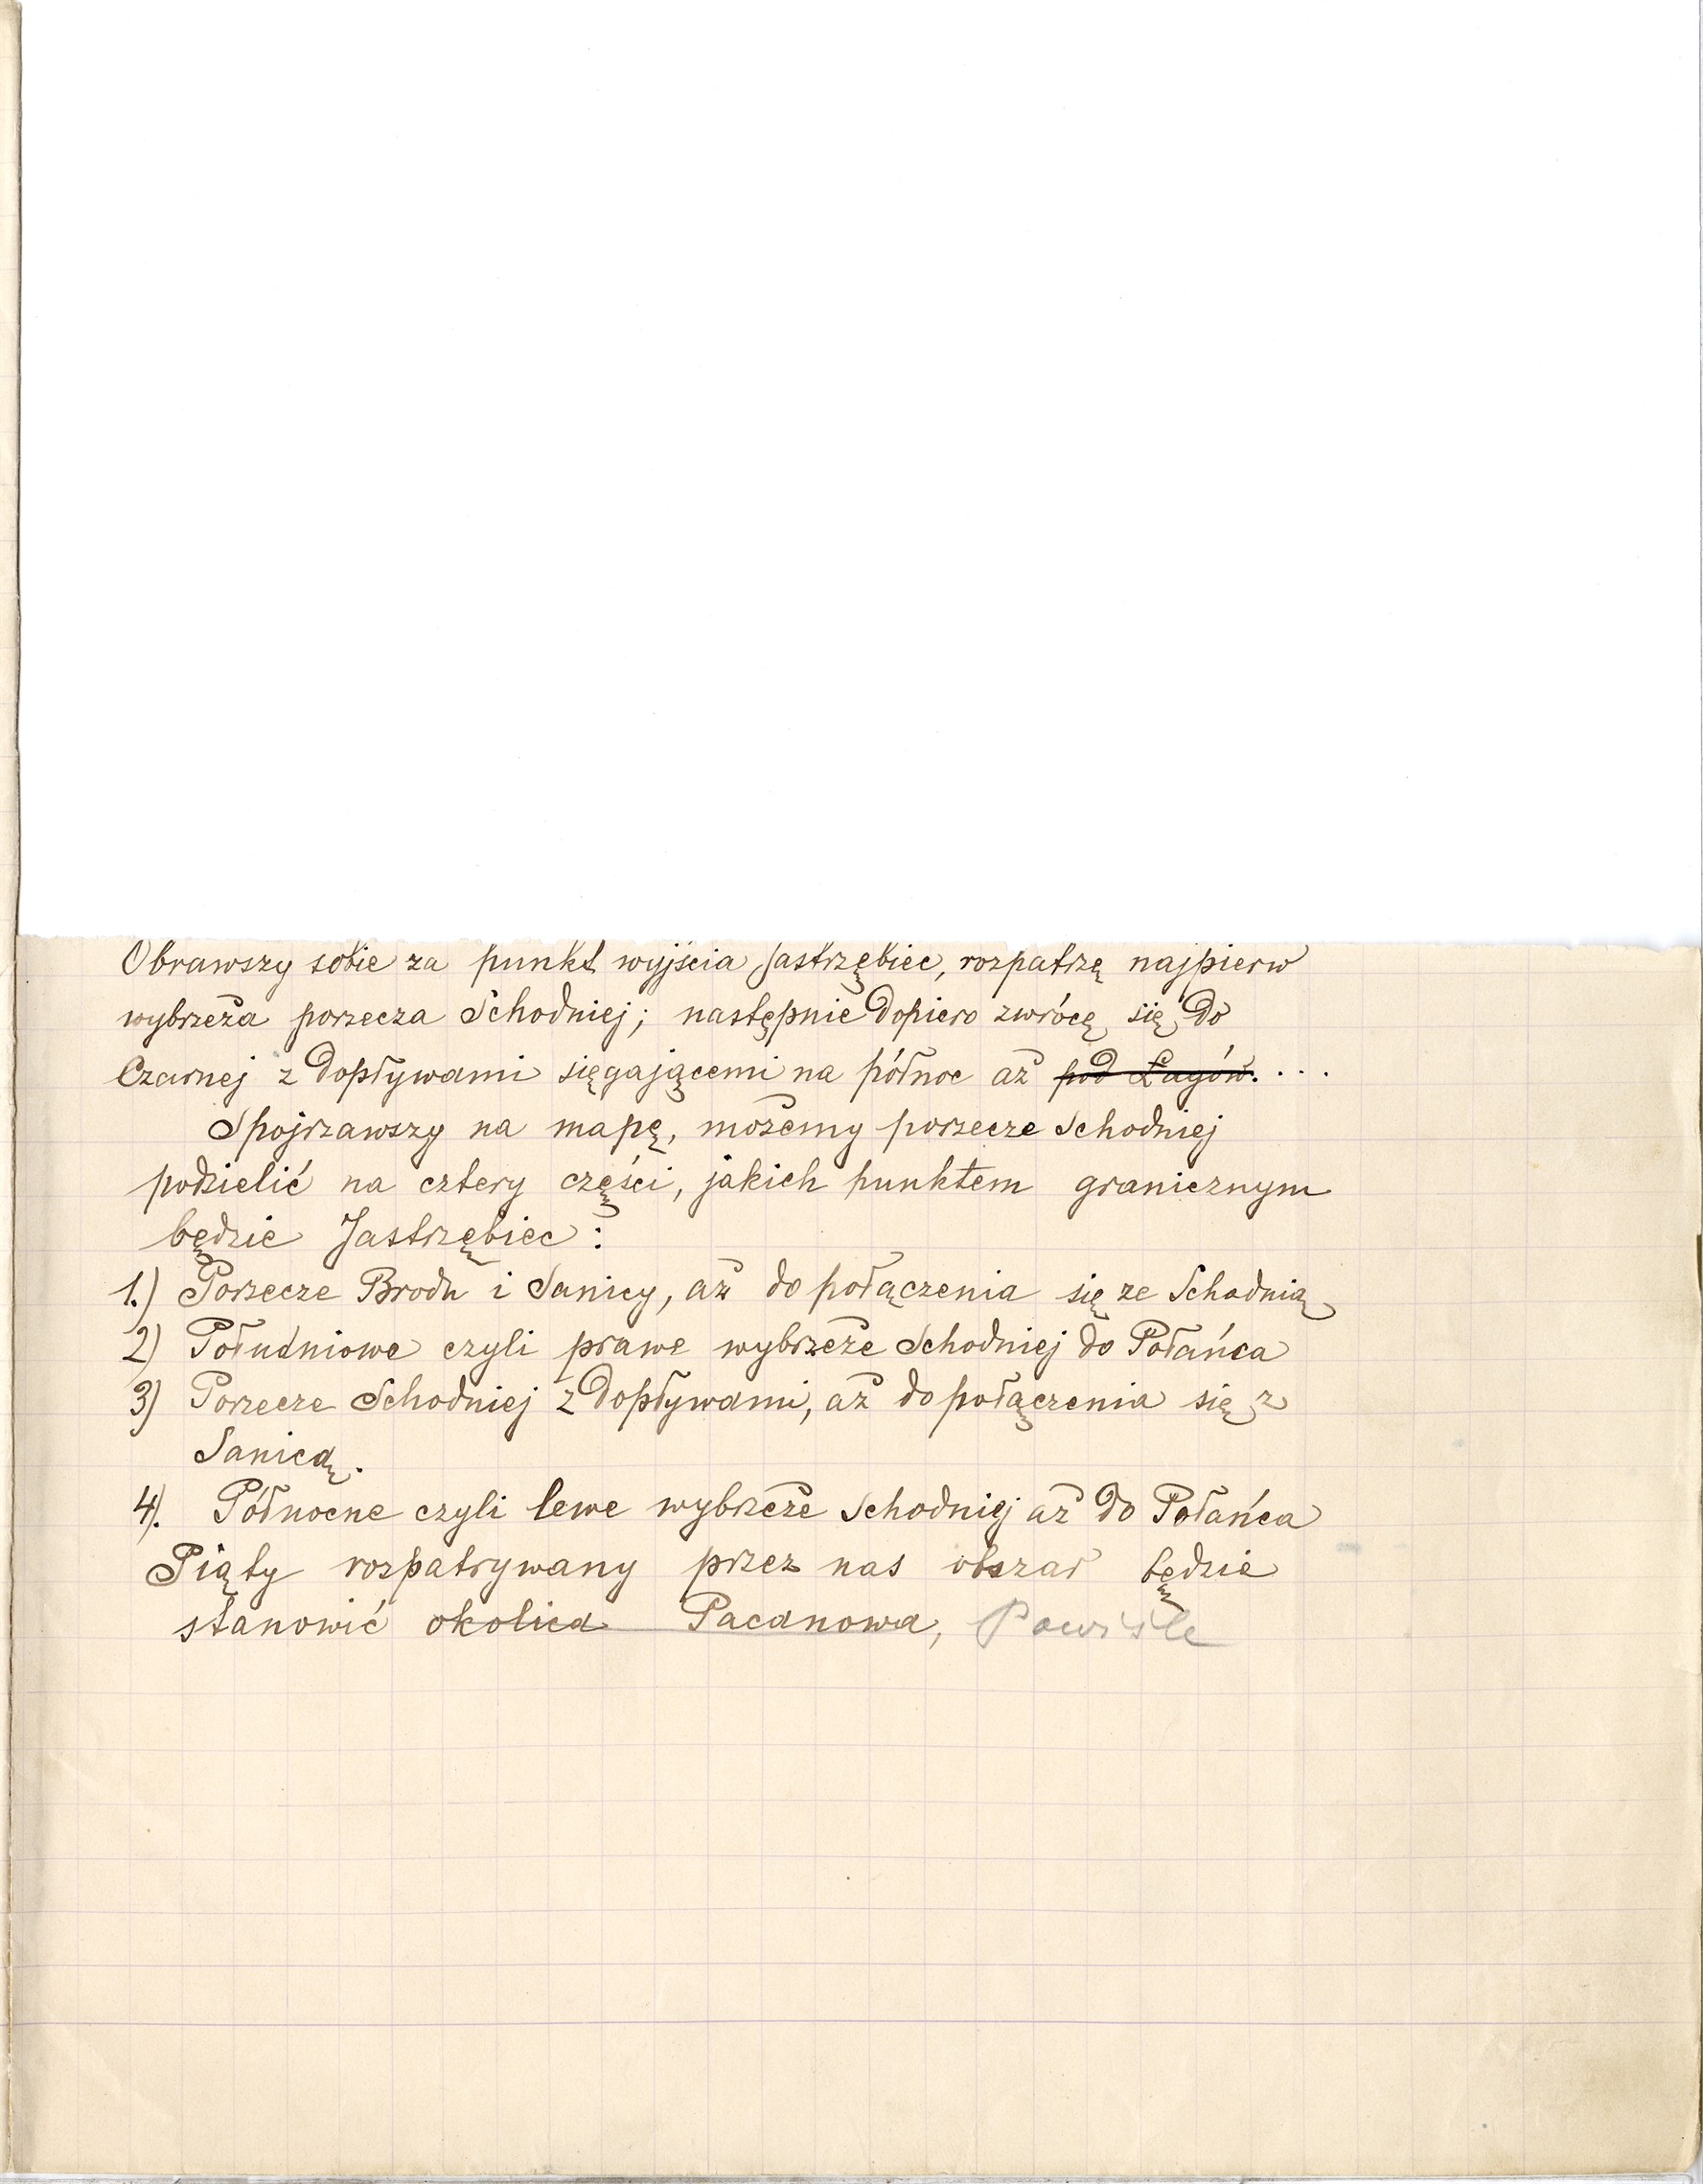 Obrawszy sobie za punkt wyjścia Jastrzębiec, rozpatrzę najpierw
wybrzeża porzecza Schodniej; następnie dopiero zwrócę się do
Czarnej z dopływami sięgającemi na północ aż pod Łagów. . . .
Spojrzawszy na mapę, możemy porzecze Schodniej
podzielić na cztery części, jakich punktem granicznym
będzie Jastrzębiec :
1.) Porzecze Brodu i Sanicy, aż do połączenia się ze Schodnią
2) Południowe czyli prawe wybrzeże Schodniej do Połańca
3) Porzecze Schodniej z dopływami, aż do połączenia się z
Sanicą.
4). Północne czyli lewe wybrzeże Schodniej aż do Połańca
Piąty rozpatrywany przez nas obszar będzie
stanowić okolica Pacanowa, Powiśle